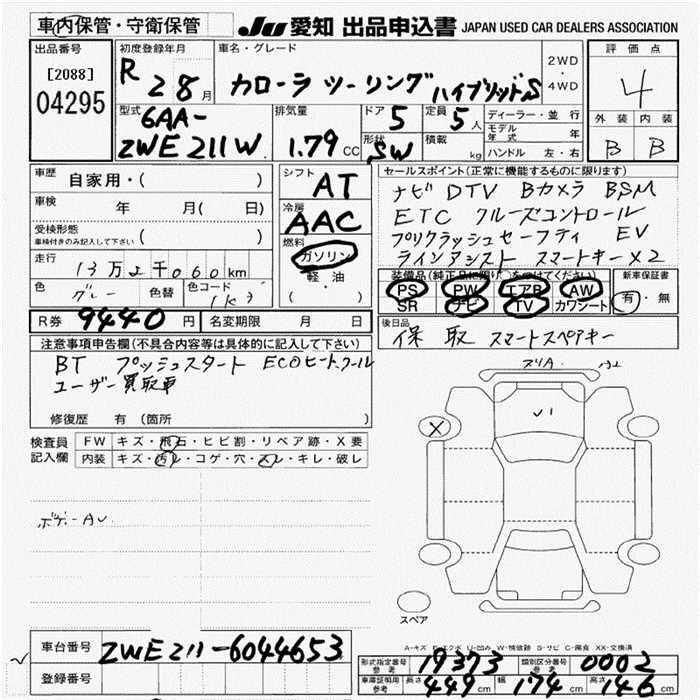 車内保管・守衛保管
JU 愛知 出品申込書 JAPAN USED CAR DEALERS ASSOCIATION
出品番号
[2088]
04295
初度登録年月
R 2 8月
車名・グレード
カローラ ツーリング ハイブリッドS
2WD
・
4WD
評価点
4
外装 内装
B B
型式
6AA-
ZWE211W
排気量
1.79 CC
ドア
5
定員
5人
形状
SW
積載
kg
ディーラー・並行
モデル年式 年
ハンドル 左・右
車歴 自家用・( )
車検 年 月( 日)
受検形態
車検付きのみ記入して下さい ( )
走行 13万2千060km
色 グレー 色替 色コード 1K3
シフト AT
冷房 AAC
燃料
ガソリン
軽・油
( )
セールスポイント(正常に機能するものに限ります)
ナビ DTV Bカメラ BSM
ETC クルーズコントロール
プリクラッシュセーフティ EV
ラインアシスト スマートキー×2
装備品(純正品に限り○をつけてください)
PS PW エアB AW
SR ナビ TV カワシート
新車保証書
有・無
R券 9440円 名変期限 月 日
後日品
保 取 スマートスペアキー
注意事項申告欄(不具合内容等は具体的に記入して下さい)
BT プッシュスタート ECOヒートクール
ユーザー買取車
修復歴 有(箇所 )
検査員
記入欄
FW キズ・飛石・ヒビ割・リペア跡・X要
内装 キズ・汚れ・コゲ・穴・スレ・キレ・破レ
スリA
X
スペア
A-キズ E-エクボ U-凹み W-補修跡 S-サビ C-腐食 XX-交換済
車台番号 ZWE211-6044653
登録番号
形式指定番号
参考 19373
類別区分番号
参考 0002
車庫証明用
参考
長さ 449cm 幅 174cm 高さ 146cm